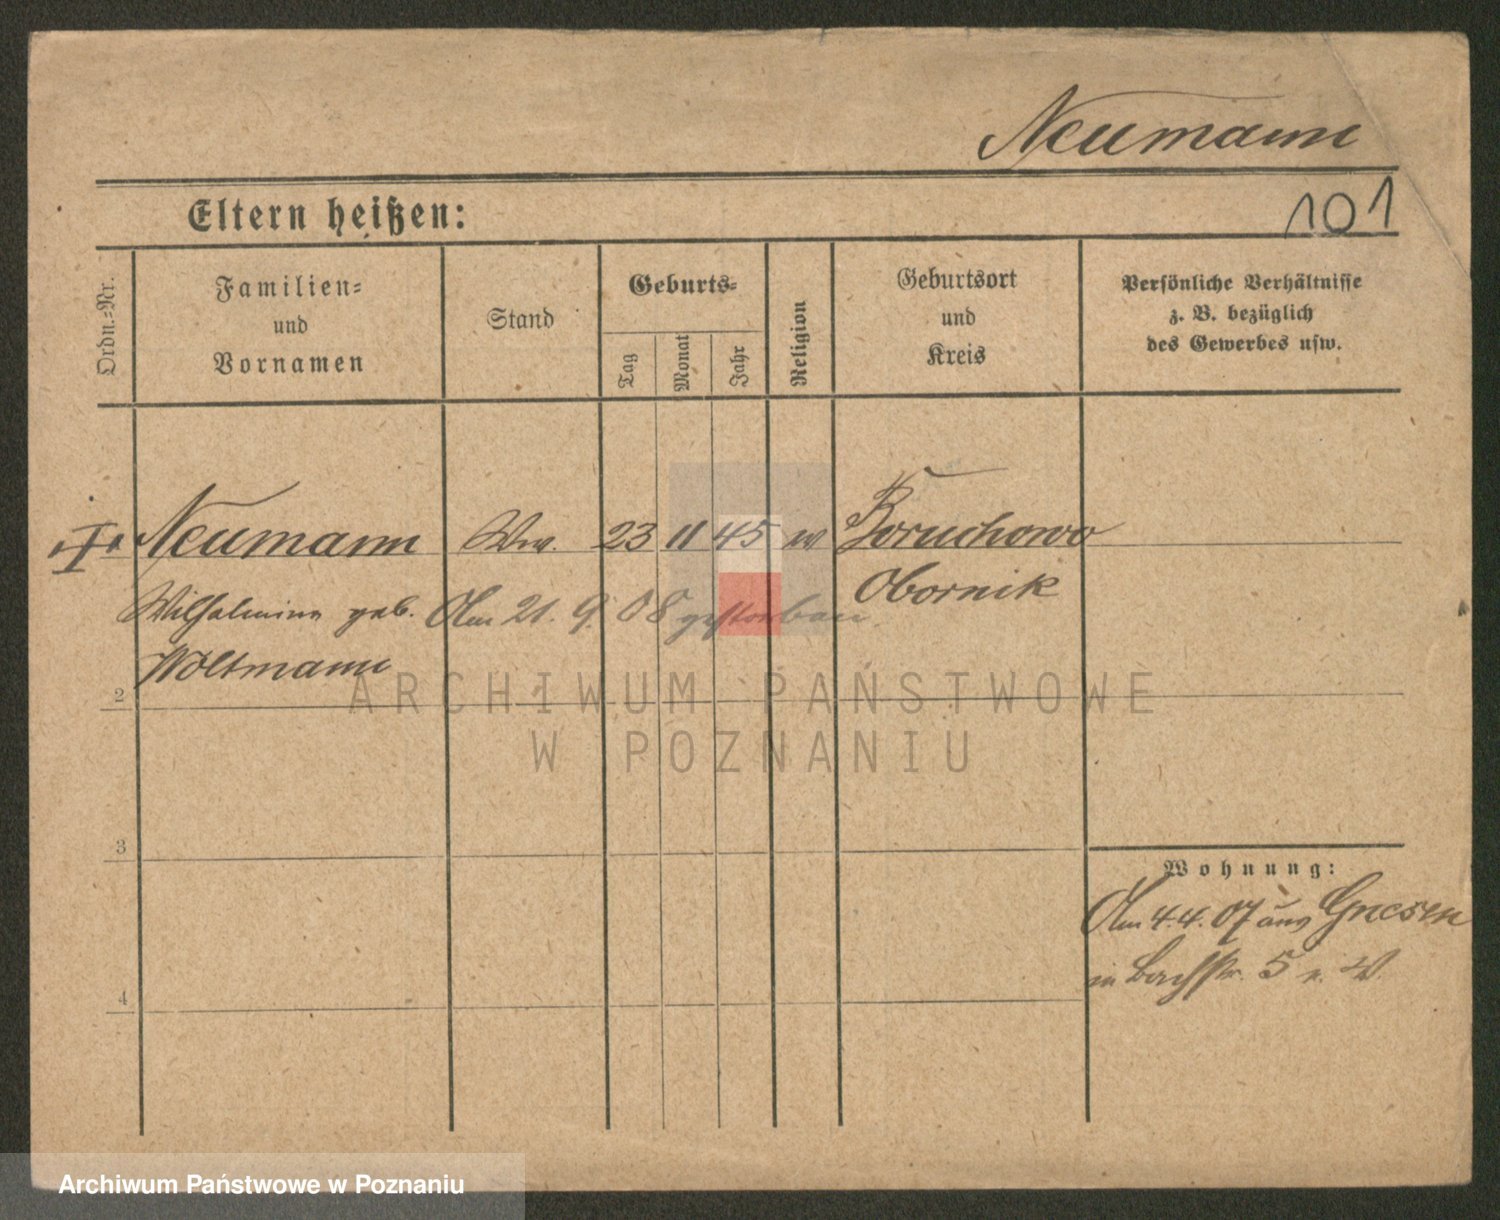 Neumann
101
Eltern heißen:
Ordn.=Nr.
Familien=
und
Vornamen
Stand
Geburts=
Tag
Monat
Jahr
Religion
Geburtsort
und
Kreis
Persönliche Verhältnisse
z. B. bezüglich
des Gewerbes usw.
Neumann Ww. 23 11 45 Boruchowo
Wilhelmine geb. Am 21. 9. 08 gestorben. Obornik
Woltmann
2
3
4
Wohnung:
Am 4.4.07 aus Gnesen
in Bachstr. 5 W.
ARCHIWUM PAŃSTWOWE
W POZNANIU
Archiwum Państwowe w Poznaniu